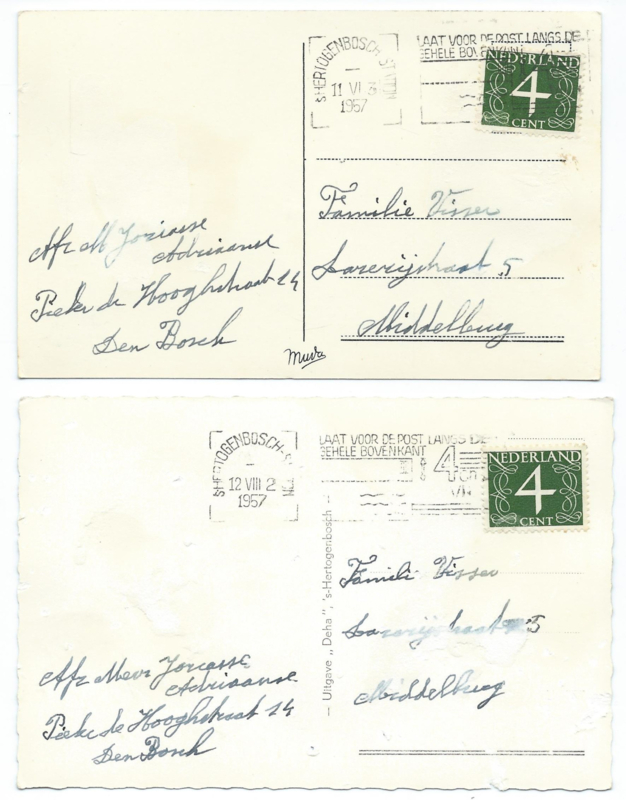 'S HERTOGENBOSCH-STATION
11 VI 3
1957
LAAT VOOR DE POST LANGS DE
GEHELE BOVENKANT 4
NEDERLAND
4
CENT
Familie Visser
Lazerijstraat 5
Middelburg
Afz M Joziasse
Adriaanse
Pieter de Hooghstraat 14
Den Bosch
Muva
'S HERTOGENBOSCH-STATION
12 VIII 2
1957
LAAT VOOR DE POST LANGS DE
GEHELE BOVENKANT
4
NEDERLAND
4
CENT
— Uitgave „Deha", 's-Hertogenbosch —
Famili Visser
Lazerijstraat 5
Middelburg
Afz Mevr Joziasse
Adriaanse
Pieter de Hooghstraat 14
Den Bosch